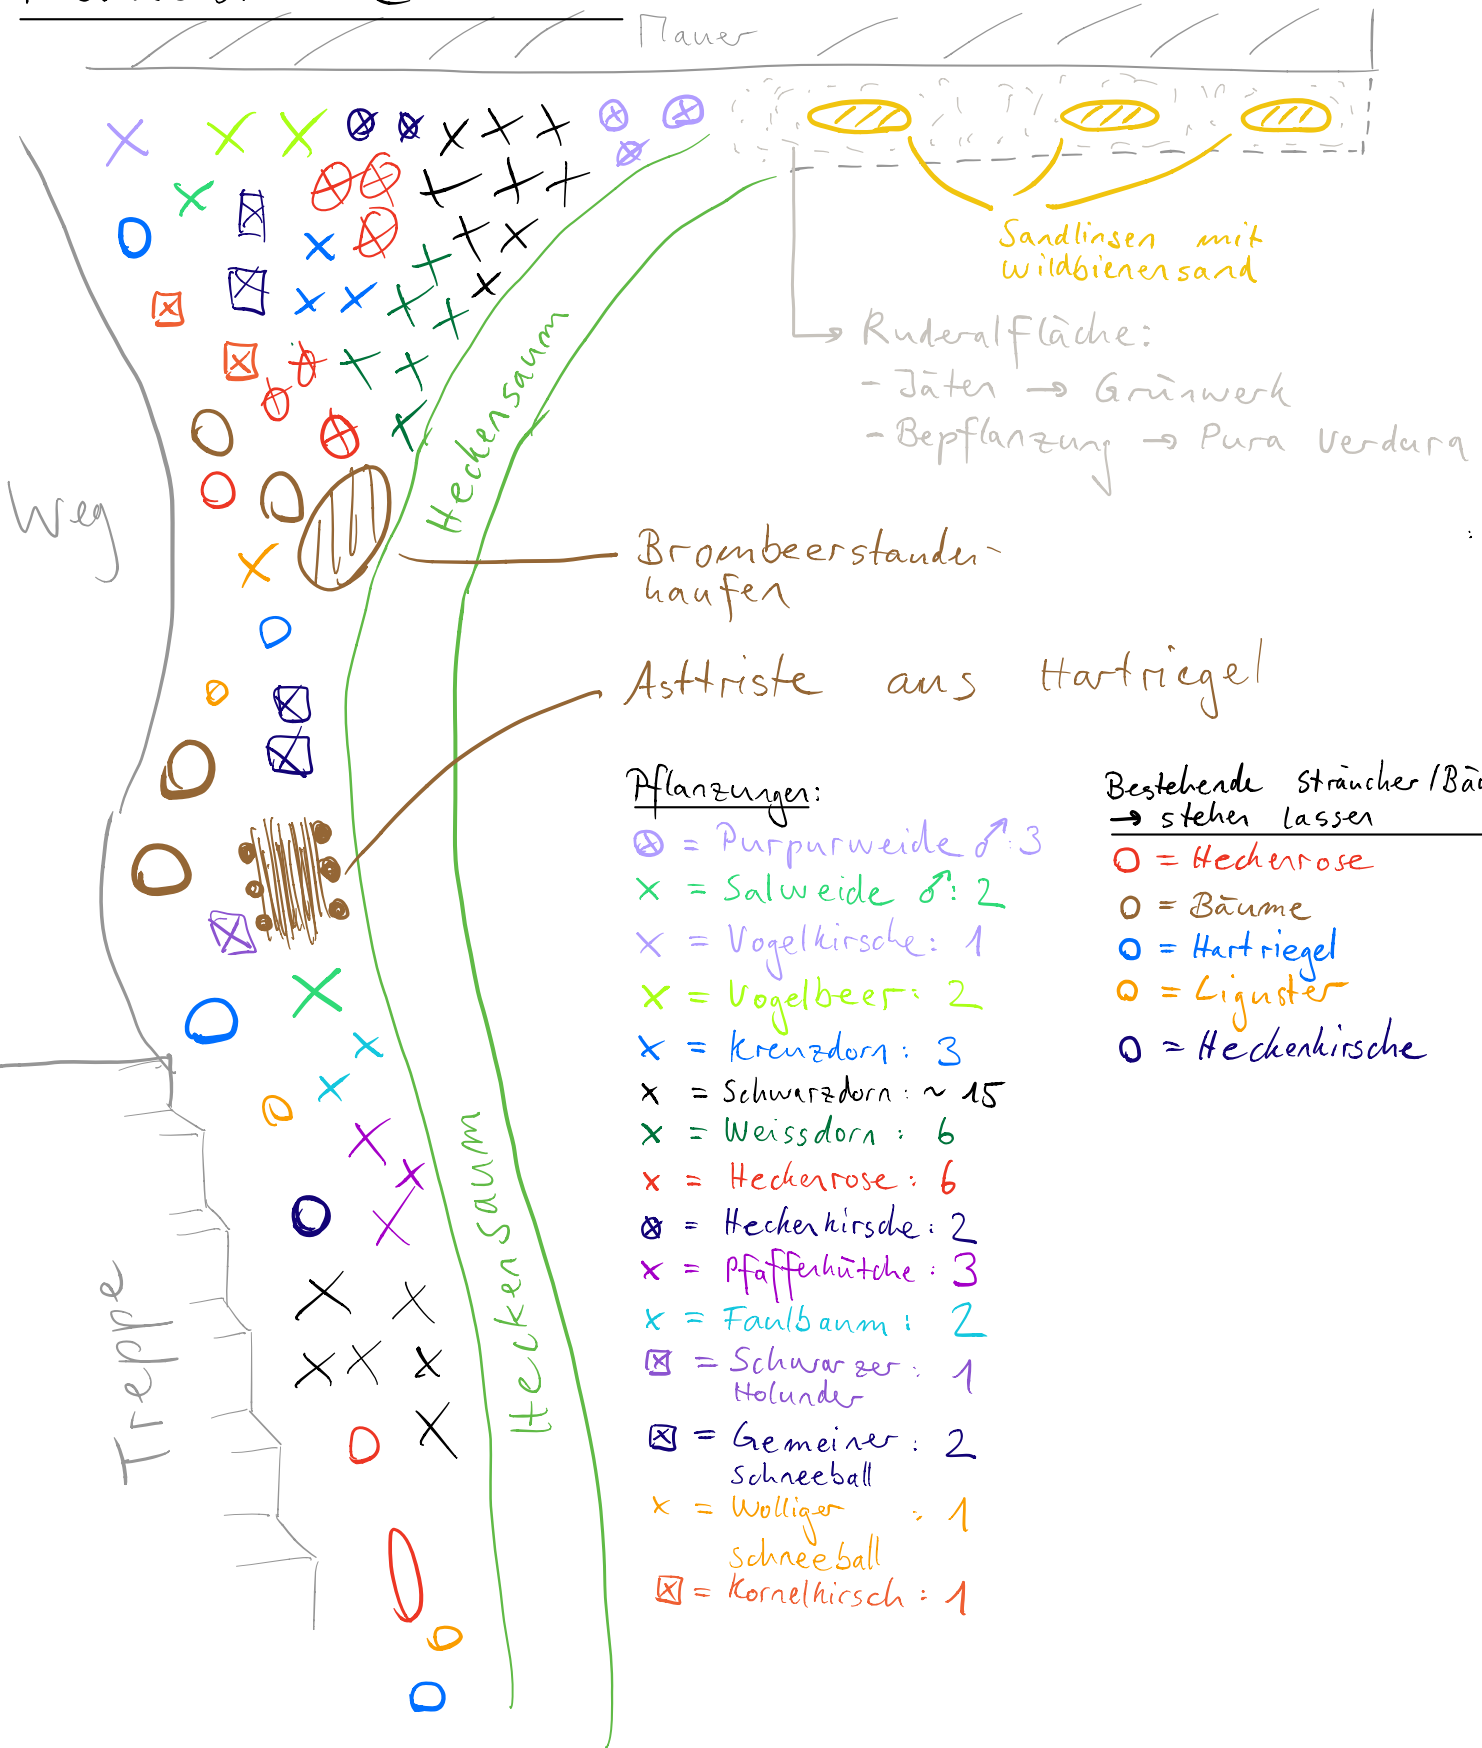 Mauer
Sandlinsen mit
wildbienensand
Ruderalfläche:
- Jäten → Grünwerk
- Bepflanzung → Pura Verdura
Heckensaum
Weg
Brombeerstauden-
haufen
Asttriste aus Hartriegel
Pflanzungen:
= Purpurweide ♂: 3
x = Salweide ♂: 2
x = Vogelkirsche: 1
x = Vogelbeer: 2
x = Kreuzdorn: 3
x = Schwarzdorn: ~ 15
x = Weissdorn: 6
x = Heckenrose: 6
= Heckenkirsche: 2
x = Pfaffenhütche: 3
x = Faulbaum: 2
= Schwarzer: 1
Holunder
= Gemeiner: 2
Schneeball
x = Wolliger: 1
Schneeball
= Kornelkirsch: 1
Bestehende Sträucher/Bäu
→ stehen lassen
O = Heckenrose
O = Bäume
O = Hartriegel
O = Liguster
O = Heckenkirsche
Heckensaum
Treppe